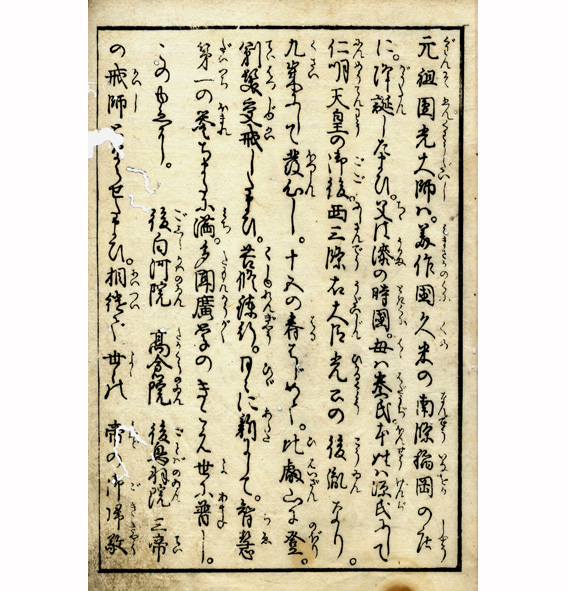 元祖圓光大師ハ。美作國久米の南條稲岡の庄
に。降誕し玉ひ。父は漆の時國。母ハ秦氏本姓ハ源氏にて
仁明天皇の御後。西三條右大臣光公の後胤なり。
九歳にして發心し。十五の春はじめて。比叡山に登。
剃髪受戒したまひ。苦修練行。日々に新にして。智慧
第一の誉ちまたに満。多聞廣学のきこえ世に普し。
このゆゑに。 後白河院 高倉院 後鳥羽院 三帝
の戒師とならせたまひ。相続て 世々 帝の御帰敬